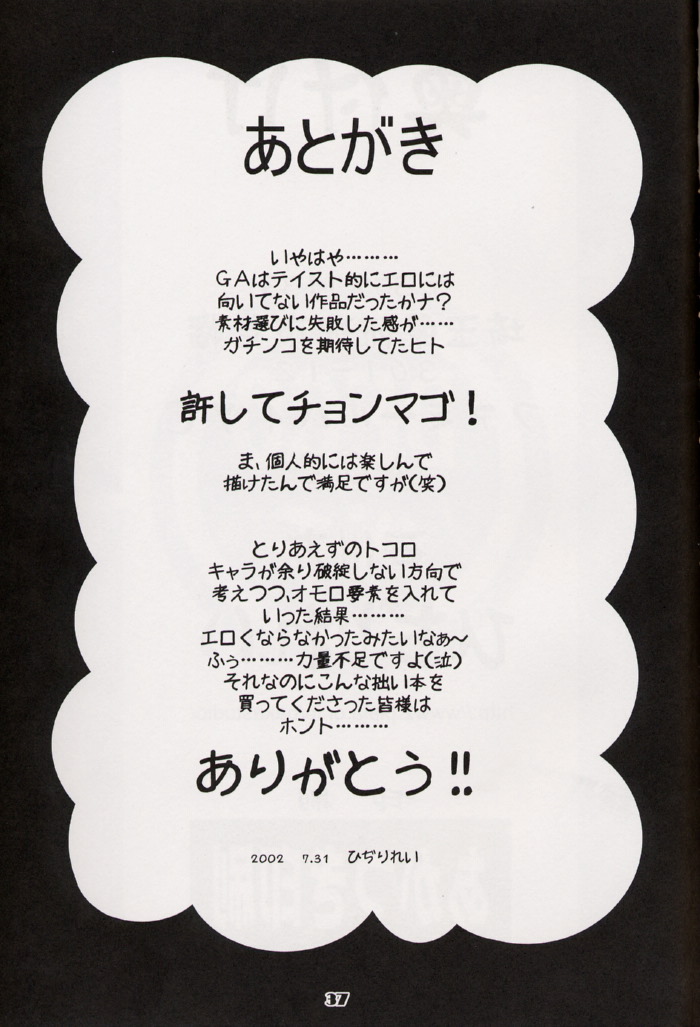 あとがき
いやはや………
GAはテイスト的にエロには
向いてない作品だったかナ?
素材選びに失敗した感が……
ガチンコを期待してたヒト
許してチョンマゲ!
ま、個人的には楽しんで
描けたんで満足ですが(笑)
とりあえずのトコロ
キャラが余り破綻しない方向で
考えつつ、オモロ要素を入れて
いった結果………
エロくならなかったみたいなぁ〜
ふぅ………力量不足ですよ(泣)
それなのにこんな拙い本を
買ってくださった皆様は
ホント………
ありがとう!!
2002 7.31 ひぢりれい
37